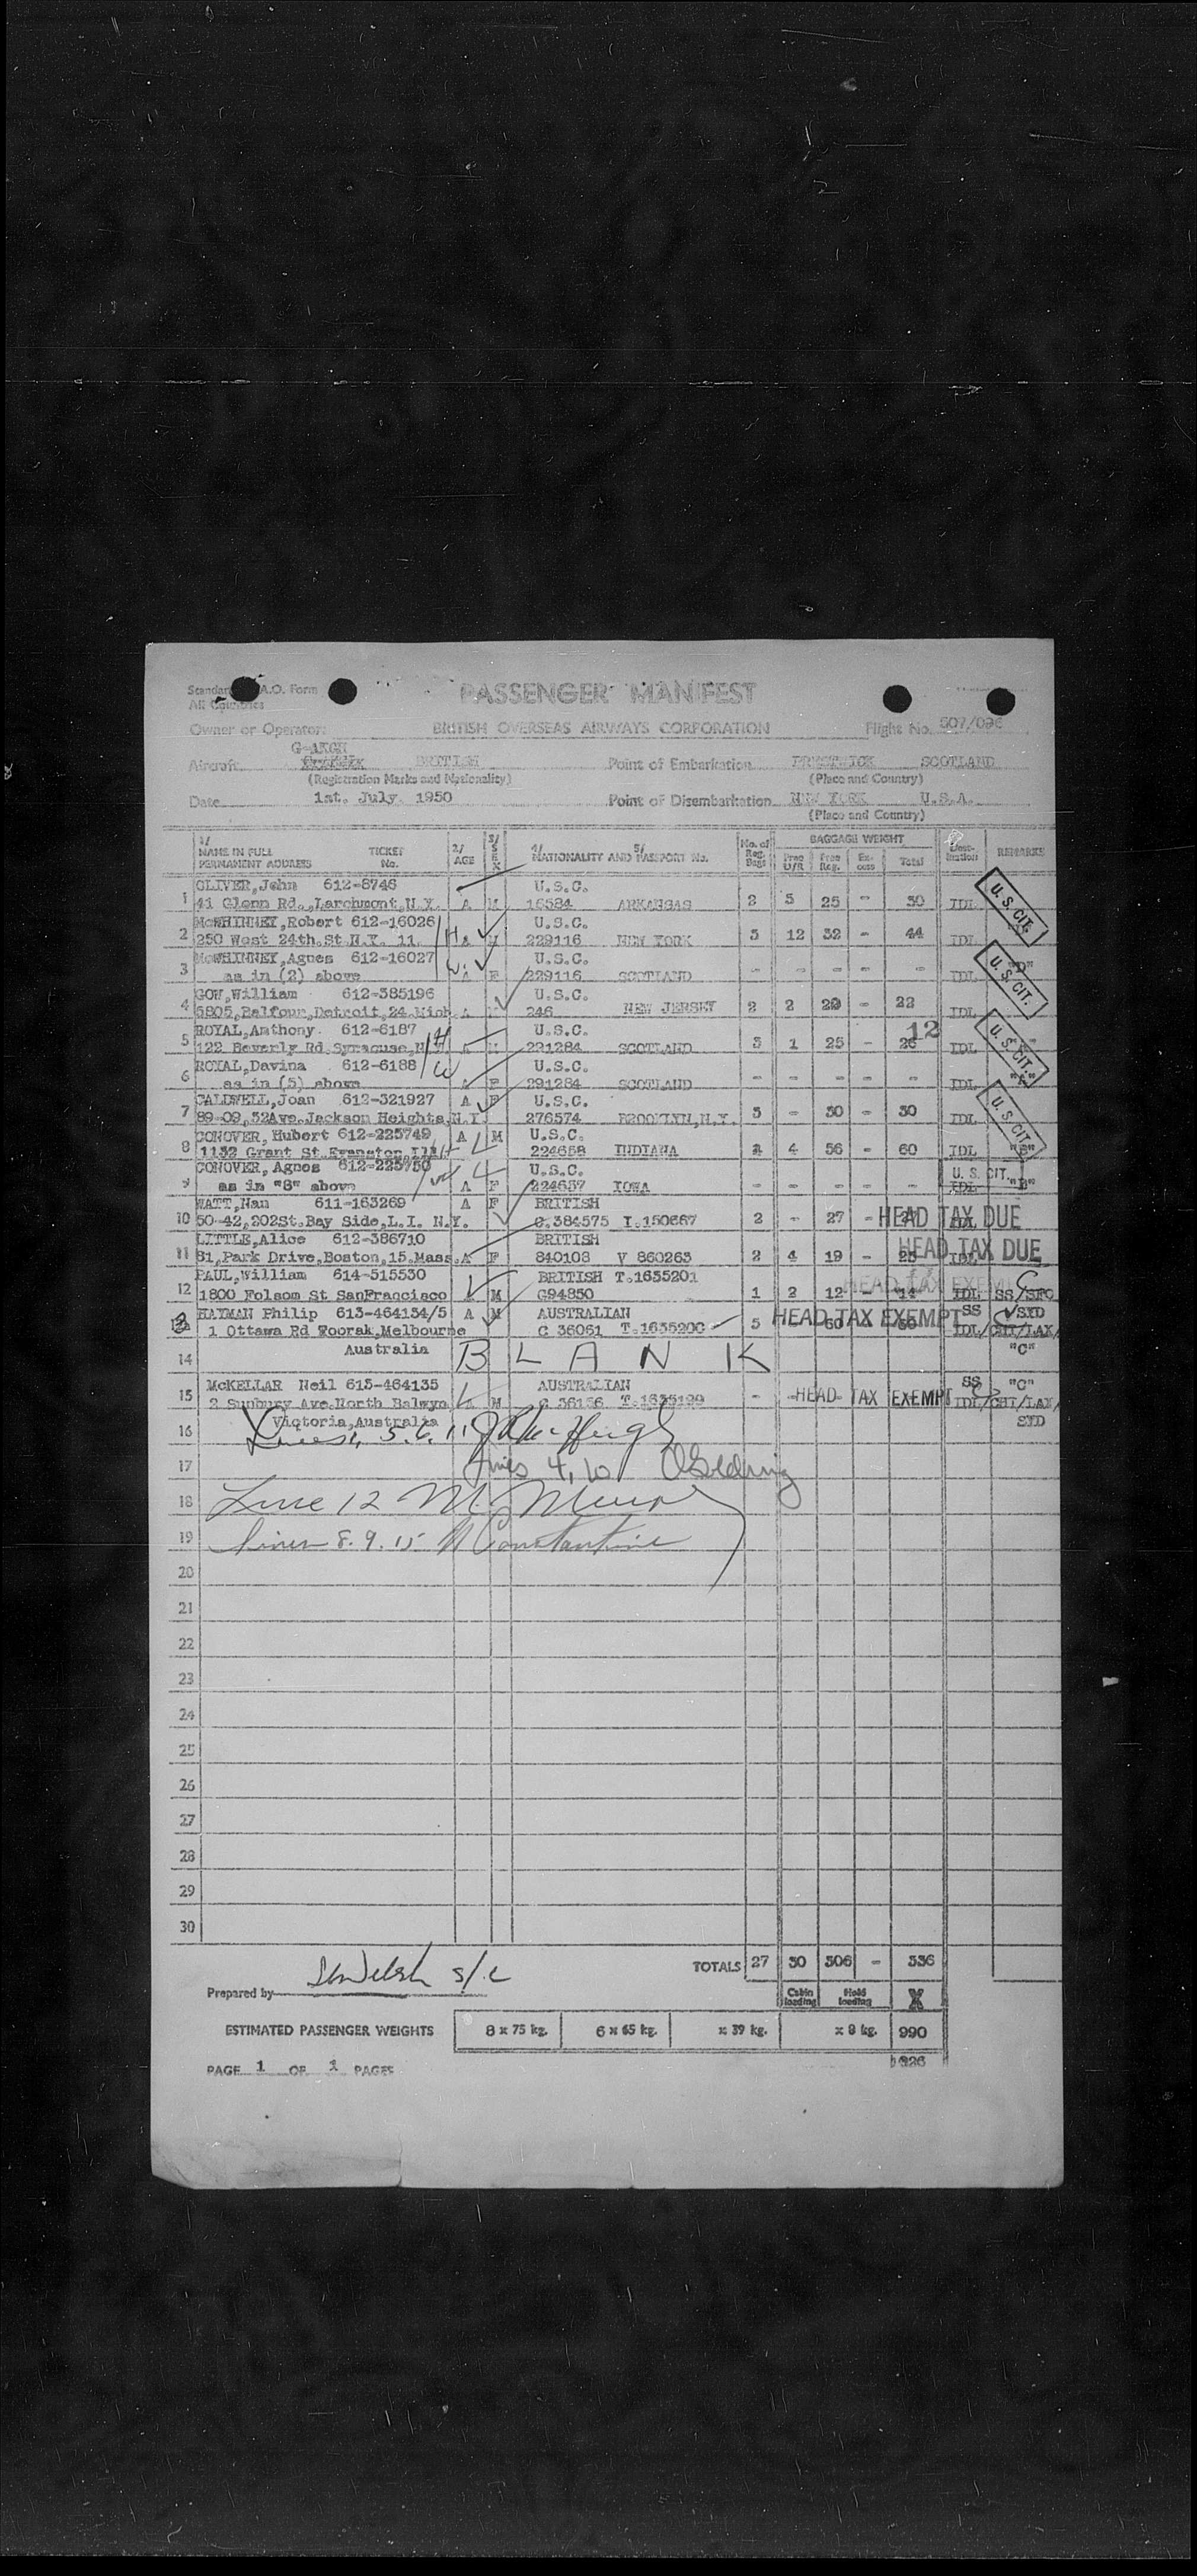 PASSENGER MANIFEST
All Countries
Owner or Operator: BRITISH OVERSEAS AIRWAYS CORPORATION Flight No.
Aircraft BRITISH Point of Embarkation PRESTWICK SCOTLAND
(Registration Marks and Nationality) (Place and Country)
Date 1st. July 1950 Point of Disembarkation NEW YORK U.S.A.
(Place and Country)
1/ NAME IN FULL PERMANENT ADDRESS TICKET No. 2/ AGE 3/ SEX 4/ NATIONALITY AND 5/ PASSPORT No. No. of Reg. Bags BAGGAGE WEIGHT Free U/R Free Reg. Excess Total Destination REMARKS
OLIVER,John 612-8746 U.S.C.
1 41 Glenn Rd.,Larchmont,N.Y. A M 16584 ARKANSAS 2 5 25 - 30 IDL U.S. CIT.
McWHINNEY,Robert 612-16026 U.S.C.
2 250 West 24th.St N.Y. 11. H A M 229116 NEW YORK 3 12 32 - 44 IDL
McWHINNEY,Agnes 612-16027 U.S.C.
3 as in (2) above W. A F 229116 SCOTLAND - - - - - IDL U.S. CIT.
GOW,William 612-385196 U.S.C.
4 5805,Balfour,Detroit,24 Mich. A 246 NEW JERSEY 2 2 20 - 22 IDL
ROYAL,Anthony. 612-6187 U.S.C. 12
5 122 Beverly Rd.Syracuse,N.Y. H M 291284 SCOTLAND 3 1 25 - 26 IDL U.S. CIT.
ROYAL,Davina 612-6188 W U.S.C.
6 as in (5) above A F 291284 SCOTLAND - - - - - IDL
CALDWELL,Joan 612-321927 A F U.S.C.
7 89-09,32Ave.Jackson Heights,N.Y. 276574 BROOKLYN,N.Y. 3 - 30 - 30 IDL U.S. CIT.
CONOVER, Hubert 612-225749 A M U.S.C.
8 1132 Grant St.Evanston Ill H 224658 INDIANA 4 4 56 - 60 IDL
CONOVER, Agnes 612-225750 U.S.C. U.S. CIT.
9 as in "8" above A F 224657 IOWA IDL
WATT,Nan 611-163269 A F BRITISH
10 50-42,202St.Bay Side,L.I. N.Y. C.384575 I.150667 2 - 27 - 27 HEAD TAX DUE
LITTLE,Alice 612-386710 BRITISH
11 81,Park Drive,Boston,15.Mass. A F 840108 V 860263 2 4 19 - HEAD TAX DUE IDL
PAUL,William 614-515530 BRITISH T.1635201
12 1800 Folsom St SanFrancisco M G94850 1 2 12 - 14 HEAD TAX EXEMPT IDL SS/SFO
HAYMAN Philip 613-464134/5 A M AUSTRALIAN SS SYD
1 Ottawa Rd Toorak,Melbourne C 36061 T.1635200 5 HEAD TAX EXEMPT IDL/CHI/LAX/
14 Australia BLANK "C"
McKELLAR Neil 613-464135 AUSTRALIAN SS "C"
15 2 Sunbury Ave.North Balwyn A M C 36136 T.1635199 - HEAD TAX EXEMPT IDL/CHI/LAX/
Victoria,Australia SYD
16
17 Lines 4, 10
18 Line 12 M.
19 Lines 8. 9. 15 Constantine
20
21
22
23
24
25
26
27
28
29
30
TOTALS 27 30 306 - 336
Prepared by s/c
Cabin loading Hold loading X
ESTIMATED PASSENGER WEIGHTS 8 x 75 kg. 6 x 65 kg. x 39 kg. x 8 kg. 990
PAGE 1 OF 1 PAGES 1326